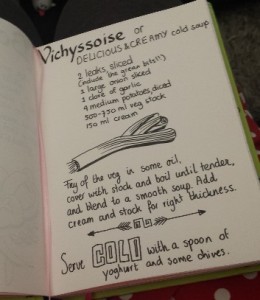 Vichyssoise or
DELICIOUS & CREAMY cold soup
2 leaks, sliced
(include the green bits!!)
1 large onion sliced
2 clove of garlic
4 medium potatoes, diced
500-750 ml veg stock
150 ml cream
Frey of the veg in some oil,
cover with stock and boil until tender,
and blend to a smooth soup. Add
cream and stock for right thickness.
Serve COLD with a spoon of
yoghurt and some chives.